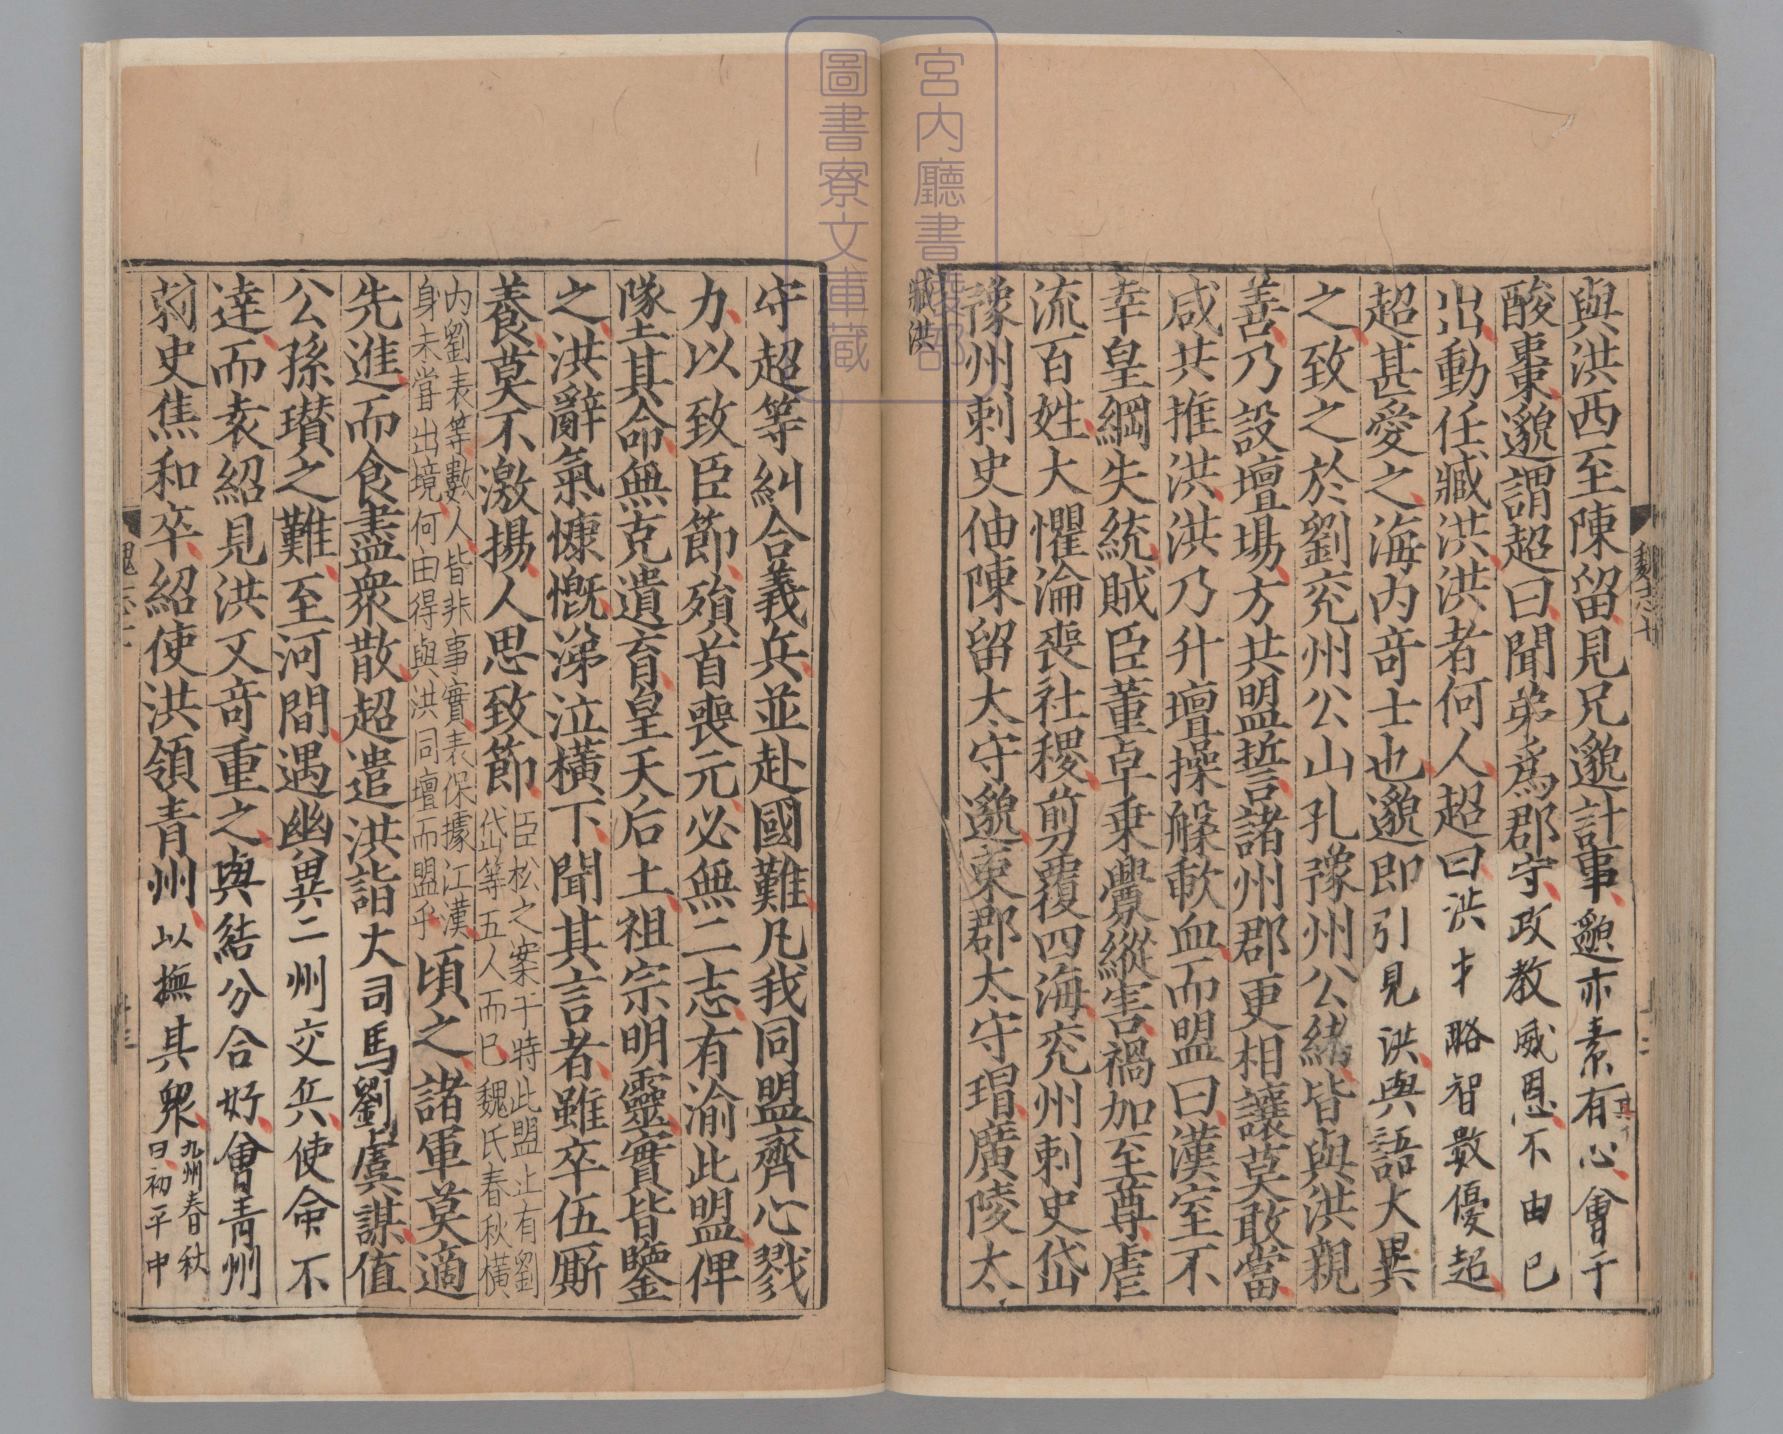 與洪西至陳留見兄邈計事邈亦素有心會于
酸棗邈謂超曰聞弟爲郡守政教威恩不由已
出動任臧洪洪者何人超曰洪才略智數優超
超甚愛之海内奇士也邈即引見洪與語大異
之致之於劉兖州公山孔豫州公緒皆與洪親
善乃設壇場方共盟誓諸州郡更相讓莫敢當
咸共推洪洪乃升壇操槃歃血而盟曰漢室不
幸皇綱失統賊臣董卓乗釁縱害禍加至尊虐
流百姓大懼淪喪社稷剪覆四海兖州刺史岱
豫州刺史伷陳留太守邈東郡太守瑁廣陵太
臧洪
守超等糾合義兵並赴國難凡我同盟齊心戮
力以致臣節殞首喪元必無二志有渝此盟俾
隊其命無克遺育皇天后土祖宗明靈實皆鑒
之洪辭氣慷慨涕泣橫下聞其言者雖卒伍厮
養莫不激揚人思致節臣松之案于特此盟止有劉
岱等五人而已魏氏春秋橫
内劉表等數人皆非事實表保據江漢
身未嘗出境何由得與洪同壇而盟乎頃之諸軍莫適
先進而食盡衆散超遣洪詣大司馬劉虞謀值
公孫瓚之難至河間遇幽冀二州交兵使命不
達而袁紹見洪又奇重之與結分合好會青州
刺史焦和卒紹使洪領青州以撫其衆九州春秋
曰初平中
魏志十
宮内廳書陵部
圖書寮文庫藏